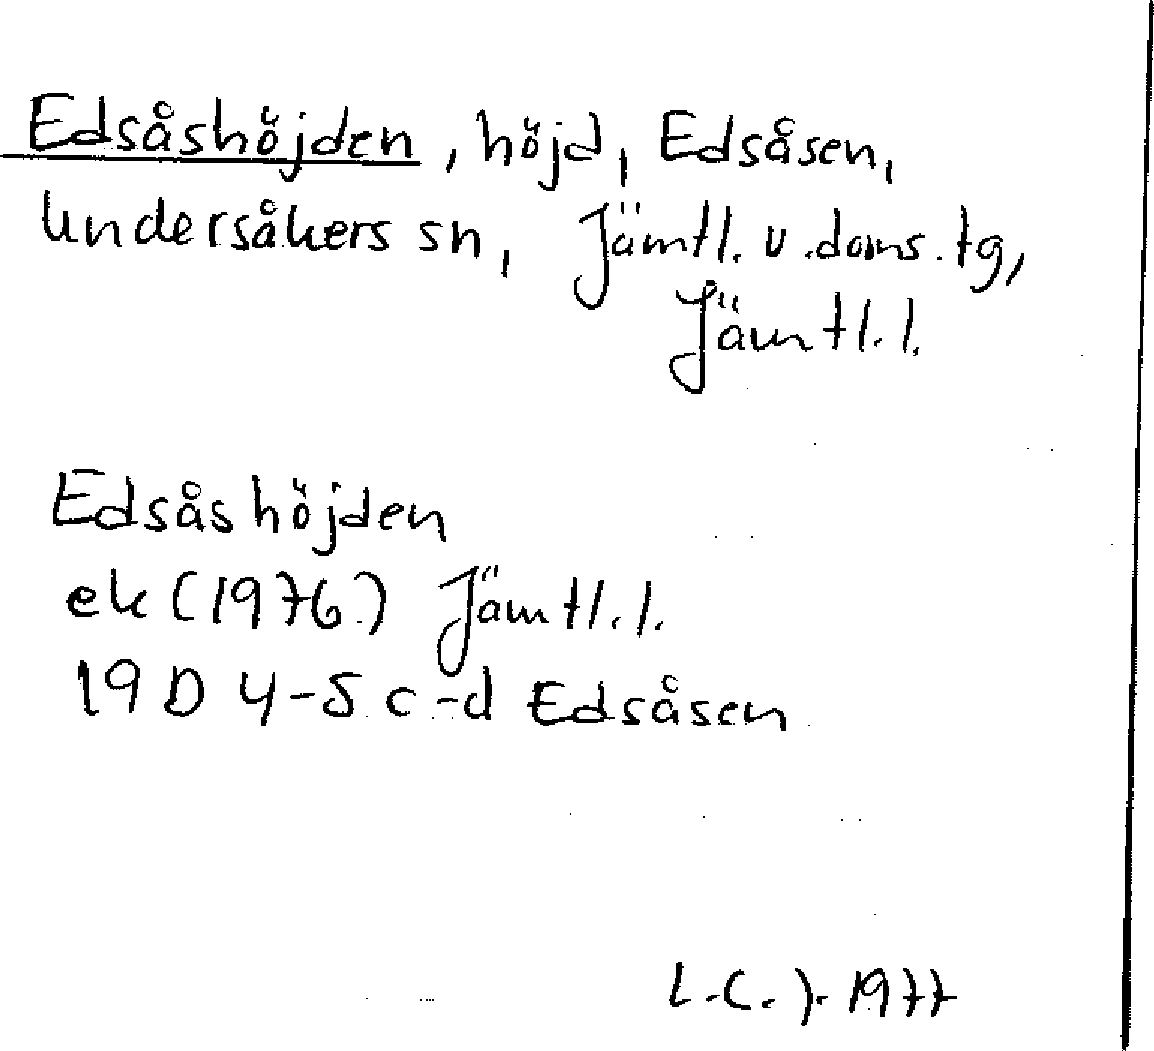 Edsåshöjden, höjd, Edsåsen,
Undersåkers sn, Jämtl. v. doms. tg,
Jämtl. l.
Edsåshöjden
ek (1976) Jämtl. l.
19 D 4-5 c-d Edsåsen
L.C. J. 1977